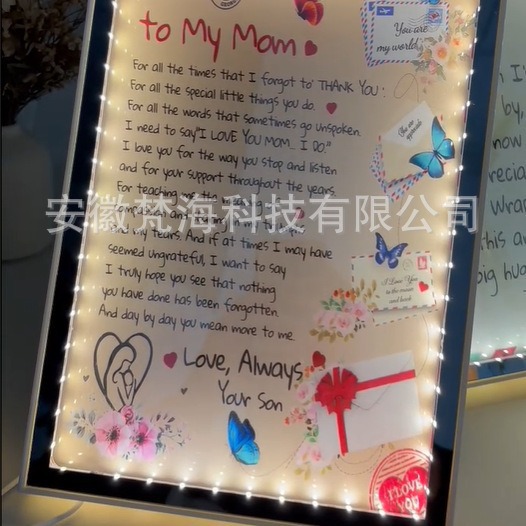 to My Mom
For all the times that I forgot to THANK YOU :
For all the special little things you do.
For all the words that sometimes go unspoken.
I need to say"I LOVE YOU MOM... I DO."
I love you for the way you stop and listen
and for your support throughout the years.
For teaching me the
安徽梵海科技有限公司
and my tears. And if at times I may have
seemed ungrateful, I want to say
I truly hope you see that nothing
you have done has been forgotten.
And day by day you mean more to me.
Love, Always
Your Son
You are
my world
You are
appreciated
I Love You
to the moon
and back
I LOVE
YOU
n I'
by,
now
recial
Wrap
this an
big hug